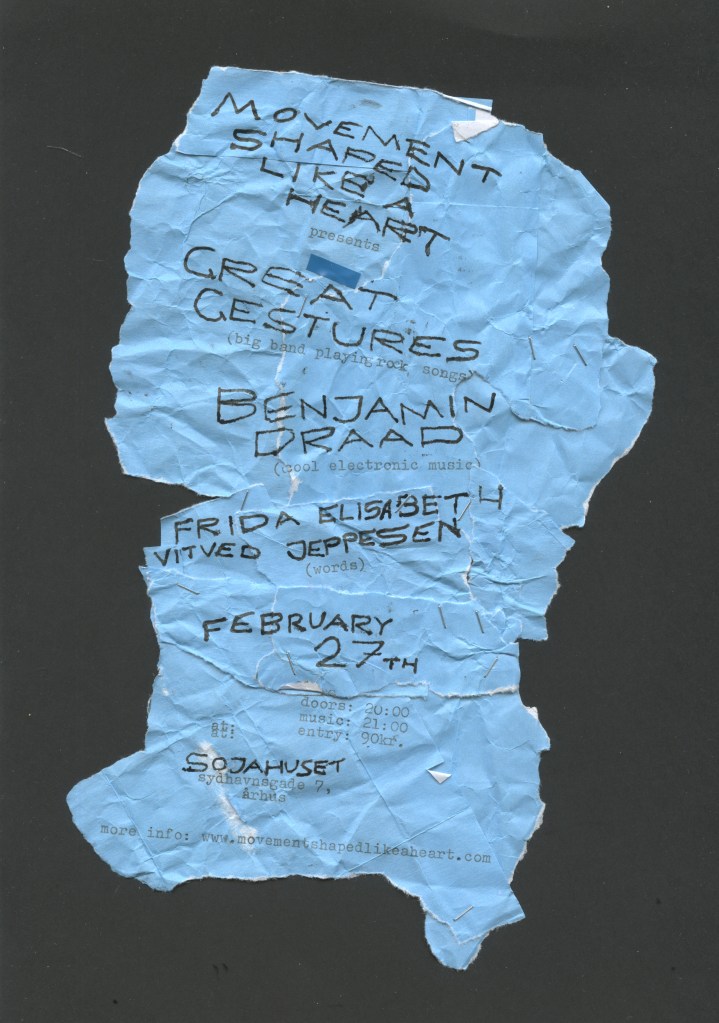 MOVEMENT
SHAPED
LIKE A
HEART
presents
GREAT
GESTURES
(big band playing rock songs)
BENJAMIN
DRAAD
(cool electronic music)
FRIDA ELISABETH
VITVED JEPPESEN
(words)
FEBRUARY
27TH
doors: 20:00
music: 21:00
at: entry: 90kr.
SOJAHUSET
sydhavnsgade 7,
Århus
more info: www.movementshapedlikeaheart.com